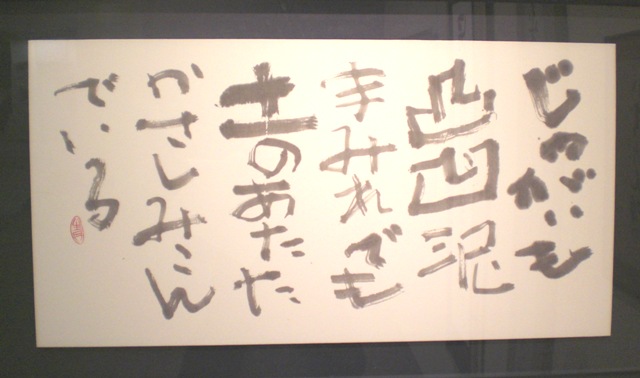 じゃがいも
凸凹泥
まみれでも
土のあたた
かさしみこん
でいる